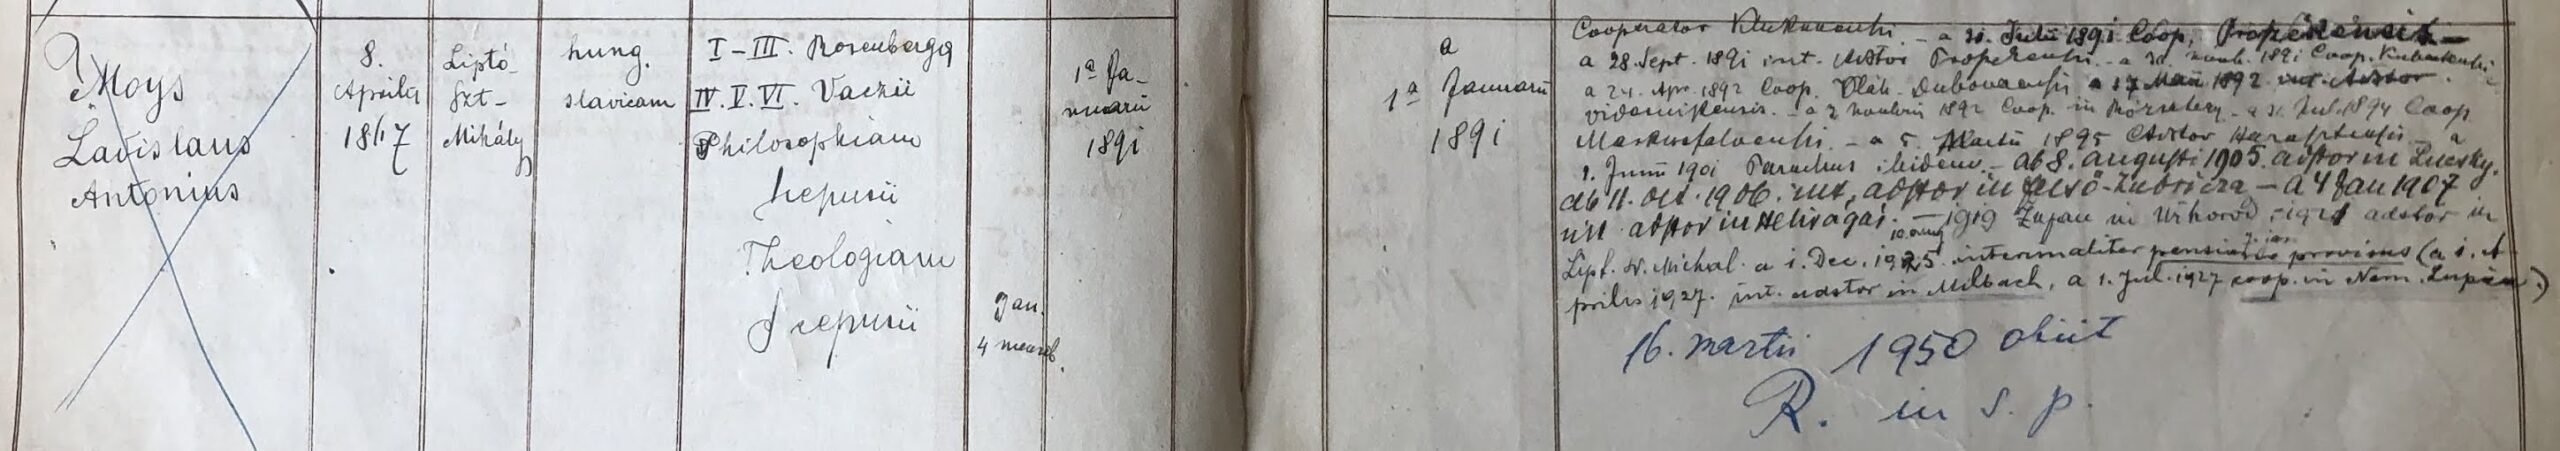 Moys
Ladislaus
Antonius
8.
Aprilis
1867
Liptó-
Szt-
Mihály
hung.
slavicam
I-III. Rosenbergæ
IV. V. VI. Vaczii
Philosophiam
Scepusii
Theologiam
Scepusii
Jan.
4 mensib.
1ª Ja-
nuarii
1891
a
1ª Januarii
1891
Cooperator - a 31. Julii 1891 Coop.
a 28. Sept. 1891 int. Adstor - a 30. 1891 Coop.
a 24. Apr. 1892 Coop. Oláh-Dubovaensis a 17 Maii 1892 int. Adstor
- a 2 1892 Coop. in Rózsahegy - a 31. Jul. 1894 Coop
- a 5. Martii 1895 Adstor - a
1. Junii 1901 Parochus ibidem - ab 8. augusti 1905. adstor in Lucsky.
ab 11. oct. 1906. int. adstor in felső-Zubricza - a 4 Jan 1907
int adstor in - 1919 Župan in Užhorod, 1921 adstor in
10 aug
Lipt. Sv. Michal. a 1. Dec. 1925. interimaliter provisus (a 1. A-
prilis 1927. int. adstor in Milbach, a 1. Jul. 1927 coop. in Nem. Lupča.)
16. martii 1950 obiit
R. in s. p.